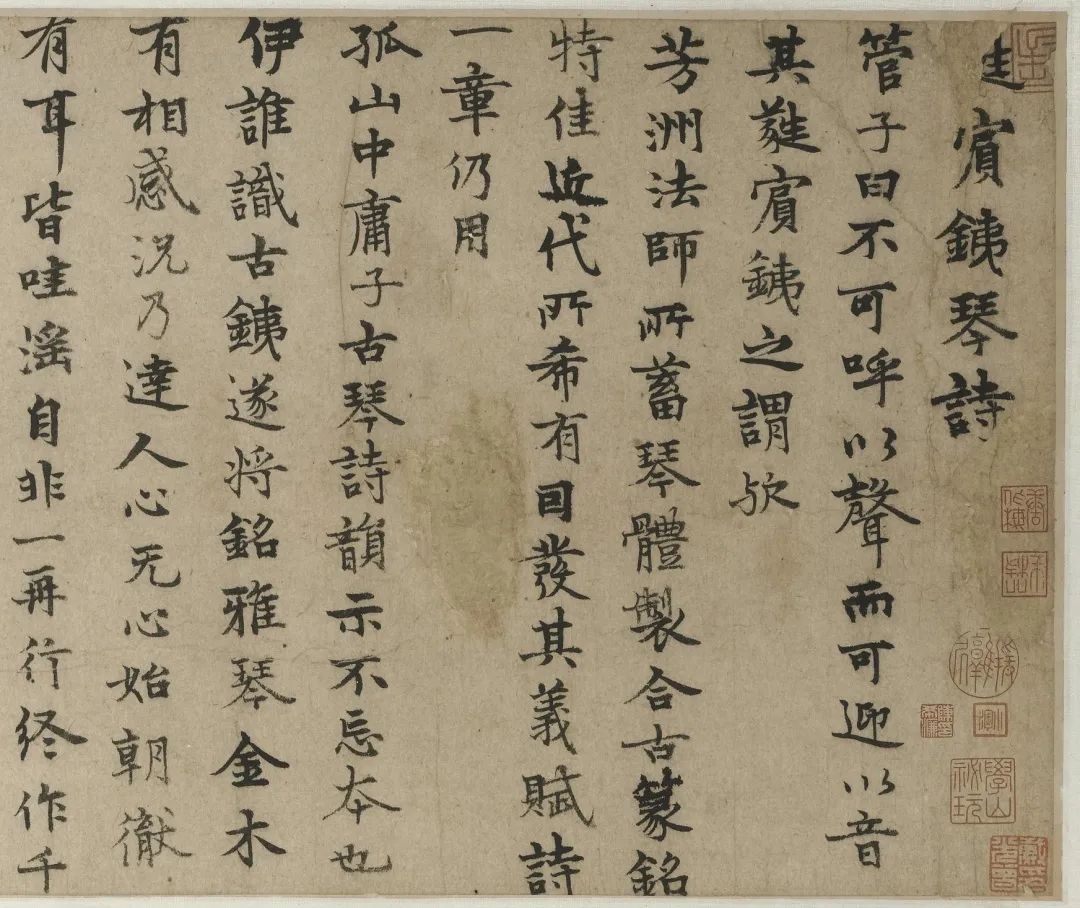 蕤賓銕琴詩
管子曰不可呼以聲而可迎以音
其蕤賓銕之謂欤
芳洲法師所蓄琴體製合古篆銘
特佳近代所希有因發其義賦詩
一章仍用
孤山中庸子古琴詩韻示不忘本也
伊誰識古銕遂將銘雅琴金木
有相感況乃達人心无心始朝徹
有耳皆哇淫自非一再行終作千
學山
祕玩